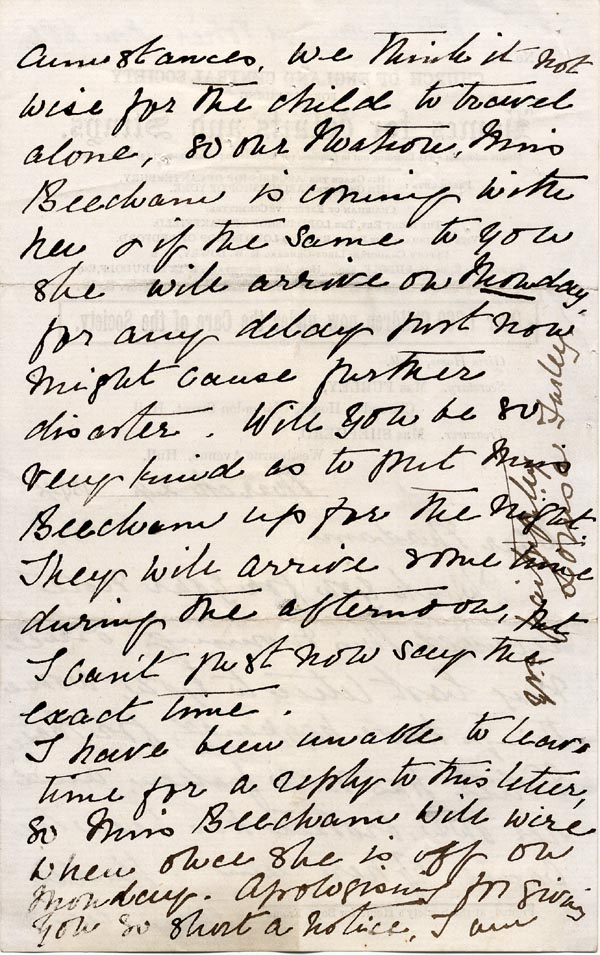 cumstances. We think it not
wise for the child to travel
alone, so our Matron, Miss
Beecham is coming with
her & if the same to you
she will arrive on Monday,
for any delay just now
might cause further
disaster. Will you be so
very kind as to put Miss
Beecham up for the night.
They will arrive some time
during the afternoon, but
I can't just now say the
exact time.
I have been unable to leave
time for a reply to this letter,
so Miss Beecham will wire
when once she is off on
Monday. Apologising for giving
you so short a notice, I am
Yrs faithfully